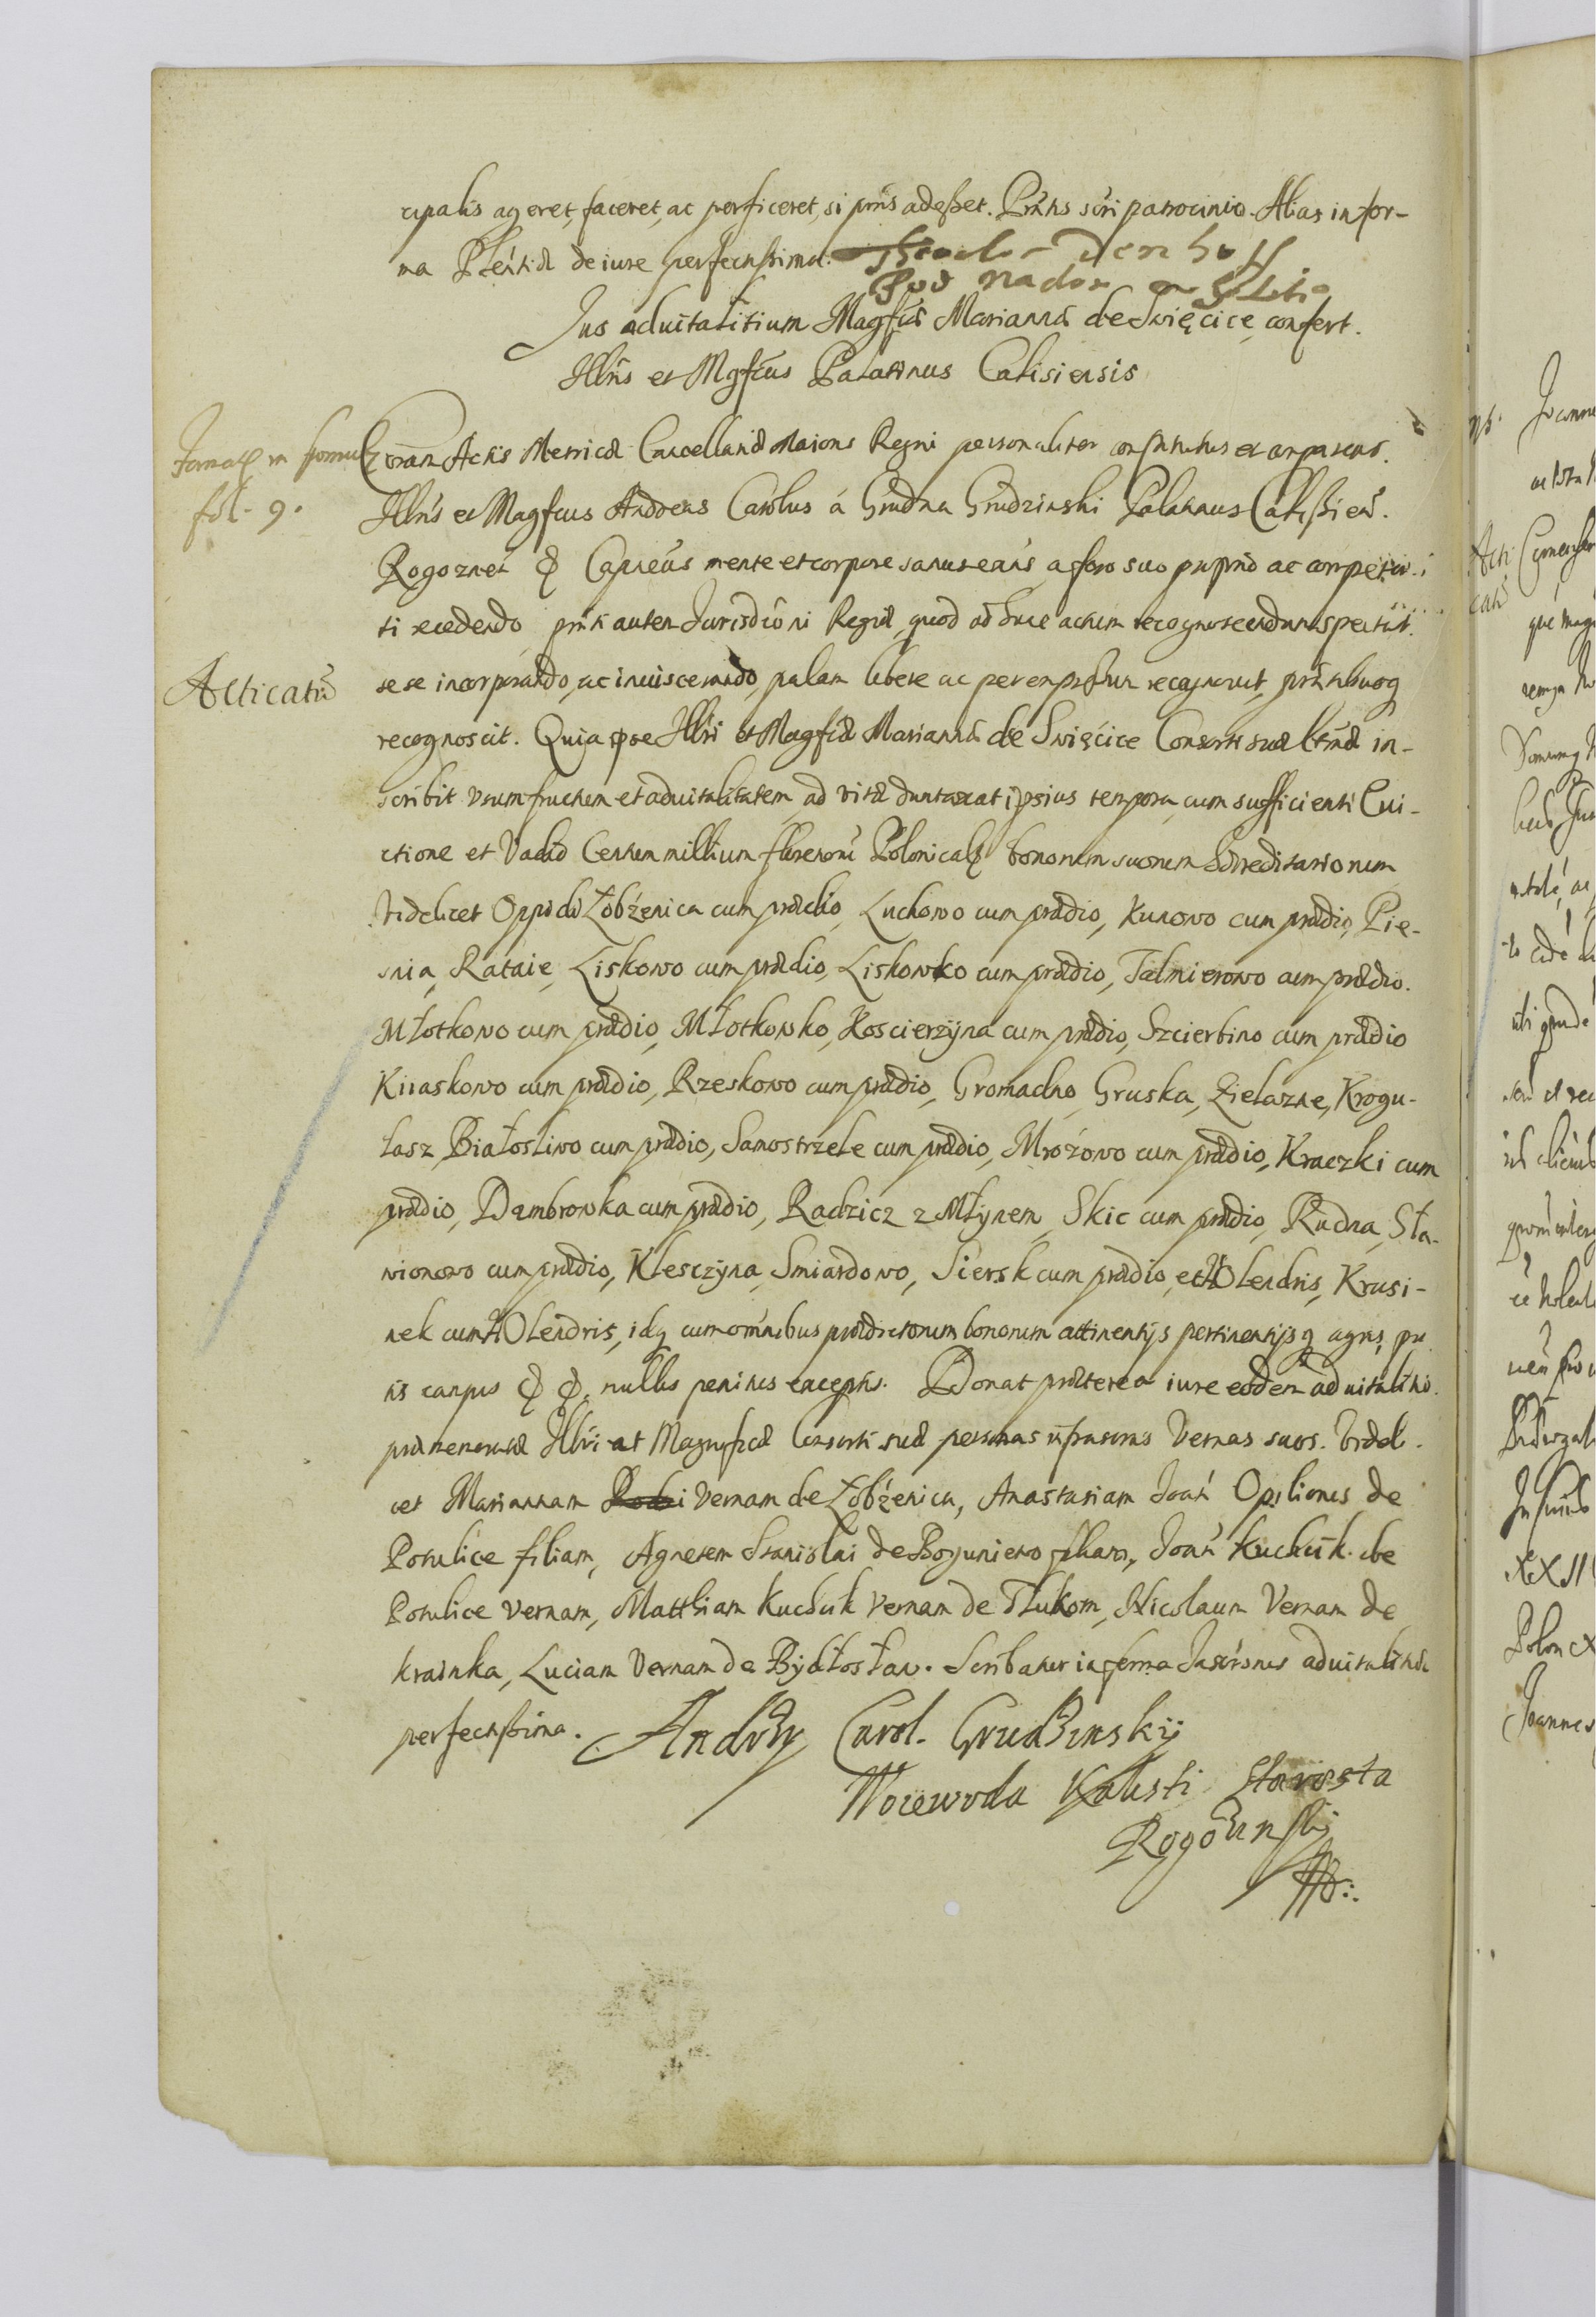 cipalis ageret, faceret, ac perficeret, si prńs adesset. Prńtis scri patrocinio. Alias in for-
ma Plentiæ de iure perfectissima. Theodor Denhoff
Pod
Jus aduitalitium Magfcæ Mariannæ de Swięcice, confert.
Illris et Mgfcus Palatinus Calisiensis
fol. 9.
Coram Actis Metricæ Cancellariæ Maioris Regni personaliter constitutus et comparens.
Illris et Magfcus Andreas Carolus á Grudna Grudzinski Palatinus Calissien.
Rogoznen & Capneús mente et corpore sanus exńs, a foro suo proprio ac competen-
ti recedendo prńti autem Jurisdióni Regiæ, quod ad hunc actum recognoscendum spectat.
Acticatū
sese incorporando, ac inuiscerando, palam libere ac per expressum recognouit, prńtibusq
recognoscit. Quia ipse Illri et Magfcæ Mariannæ de Swięcice Consorti suæ lrmæ in-
scribit vsumfructum et aduitalitatem, ad vitæ duntaxat ipsius tempora, cum sufficienti Eui-
ctione et Vadio Centum millium florenorū Polonicaliū bonorum suorum hæreditariorum
Videlicet Oppidi Łobżenica cum prædio, Luchowo cum prædio, Kunowo cum prædio, Pie-
snia, Rataie, Liskowo cum prædio, Liskowko cum prædio, Falmierowo cum prædio.
Młotkowo cum prædio, Młotkowko, Koscierzyna cum prædio, Szcierbino cum prædio
Kiiaskowo cum prædio, Rzeskowo cum prædio, Gromadno Gruska, Zielazne, Krogu-
lasz Białosliwo cum prædio, Samostrzele cum prædio, Mrożowo cum prædio, Kraczki cum
prædio, Dambrowka cum prædio, Radzicz z Młynem, Skic cum prædio, Rudna, Sła-
wionowo cum prædio, Klesczyna, Smiardowo, Siersk cum prædio, et Holendris, Krusi-
nek cum Holendris, idq cum omnibus prædictorum bonorum attinentijs pertinentijsq agris, pra
tis campis & &. nullis penitus exceptis. Donat præterea iure eodem aduitalitio.
præmemoratæ Illri et Magnificæ Consorti suæ personas infrascriptas Vernas suos. Videli-
cet Mariannam Vernam de Łobżenica, Anastasiam Joań Opilionis de
Potulice filiam, Agnetem Stanislai de Boguniewo filiam, Joań Kuchcik de
Potulice vernam, Matthiam Kuchcik vernam de Tłukom, Nicolaum Vernam de
krainka, Luciam Vernam de Białosław. Scribatur in forma Inscrōnis aduitalitiæ
perfectissima. Andrzy Carol. Grudzinskij
Woiewoda Kaliski Starosta
Rogozinskij